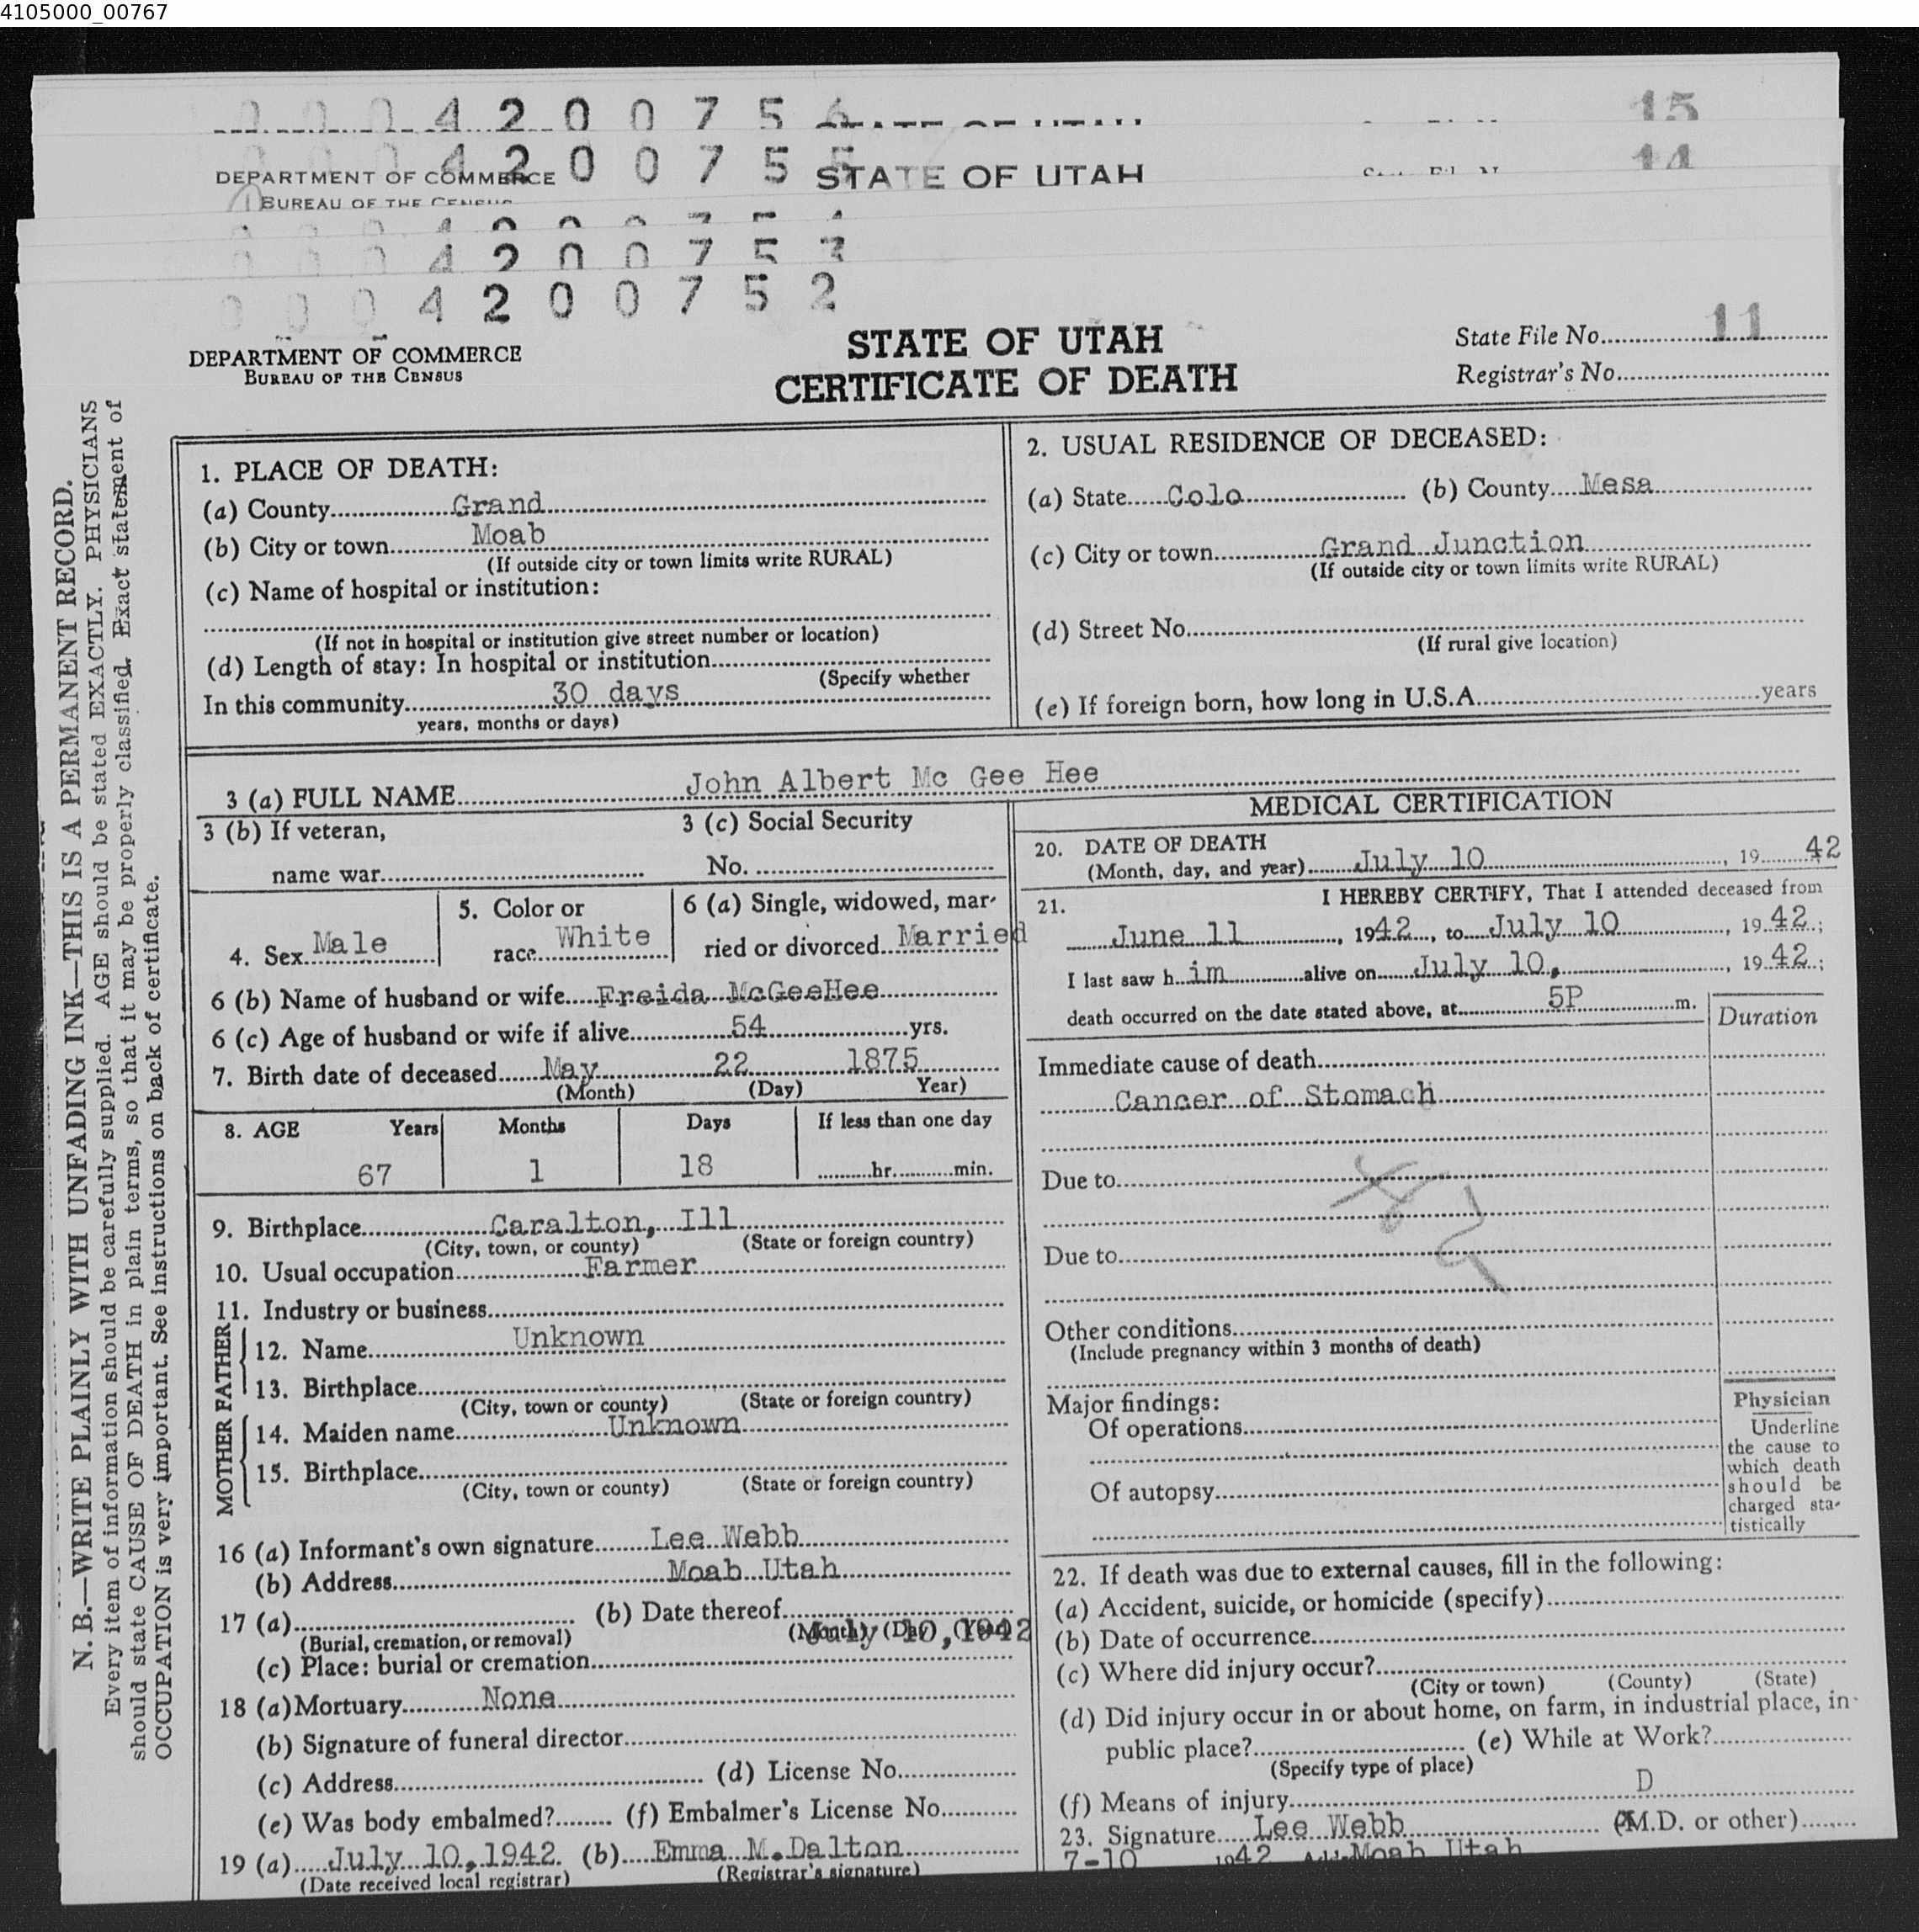 4105000_00767
0 0 0 4 2 0 0 7 5 6 STATE OF UTAH 15
0 0 0 4 2 0 0 7 5 5 14
DEPARTMENT OF COMMERCE STATE OF UTAH State File No
BUREAU OF THE CENSUS
4 2 0 0 7 5 4
0 0 0 4 2 0 0 7 5 3
0 0 0 4 2 0 0 7 5 2
STATE OF UTAH State File No. 11
DEPARTMENT OF COMMERCE
BUREAU OF THE CENSUS
CERTIFICATE OF DEATH Registrar's No.
N. B.—WRITE PLAINLY WITH UNFADING INK—THIS IS A PERMANENT RECORD.
Every item of information should be carefully supplied. AGE should be stated EXACTLY. PHYSICIANS
should state CAUSE OF DEATH in plain terms, so that it may be properly classified. Exact statement of
OCCUPATION is very important. See instructions on back of certificate.
1. PLACE OF DEATH:
(a) County Grand
(b) City or town Moab
(If outside city or town limits write RURAL)
(c) Name of hospital or institution:
(If not in hospital or institution give street number or location)
(d) Length of stay: In hospital or institution
(Specify whether
In this community 30 days
years, months or days)
2. USUAL RESIDENCE OF DECEASED:
(a) State Colo (b) County Mesa
(c) City or town Grand Junction
(If outside city or town limits write RURAL)
(d) Street No.
(If rural give location)
(e) If foreign born, how long in U.S.A. years
3 (a) FULL NAME John Albert Mc Gee Hee
3 (b) If veteran, 3 (c) Social Security
name war No.
4. Sex Male
5. Color or
race White
6 (a) Single, widowed, mar-
ried or divorced Married
6 (b) Name of husband or wife Freida McGeeHee
6 (c) Age of husband or wife if alive 54 yrs.
7. Birth date of deceased May 22 1875
(Month) (Day) Year)
8. AGE Years Months Days If less than one day
67 1 18 hr. min.
9. Birthplace Caralton, Ill
(City, town, or county) (State or foreign country)
10. Usual occupation Farmer
11. Industry or business
FATHER
12. Name Unknown
13. Birthplace
(City, town or county) (State or foreign country)
MOTHER
14. Maiden name Unknown
15. Birthplace
(City, town or county) (State or foreign country)
16 (a) Informant's own signature Lee Webb
(b) Address Moab Utah
17 (a) (b) Date thereof
(Burial, cremation, or removal) (Month) (Day) (Year) July 10, 1942
(c) Place: burial or cremation
18 (a) Mortuary None
(b) Signature of funeral director
(c) Address (d) License No.
(e) Was body embalmed? (f) Embalmer's License No.
19 (a) July 10, 1942. (b) Emma M. Dalton
(Date received local registrar) (Registrar's signature)
MEDICAL CERTIFICATION
20. DATE OF DEATH
(Month, day, and year) July 10, 19 42
21. I HEREBY CERTIFY, That I attended deceased from
June 11, 1942, to July 10, 19 42;
I last saw h im alive on July 10, 19 42;
death occurred on the date stated above, at 5P m.
Duration
Immediate cause of death
Cancer of Stomach
Due to
Due to
Other conditions
(Include pregnancy within 3 months of death)
Major findings:
Of operations
Of autopsy
Physician
Underline
the cause to
which death
should be
charged sta-
tistically
22. If death was due to external causes, fill in the following:
(a) Accident, suicide, or homicide (specify)
(b) Date of occurrence
(c) Where did injury occur?
(City or town) (County) (State)
(d) Did injury occur in or about home, on farm, in industrial place, in
public place? (e) While at Work?
(Specify type of place)
(f) Means of injury D
23. Signature Lee Webb (M.D. or other)
7-10 1942 Moab Utah